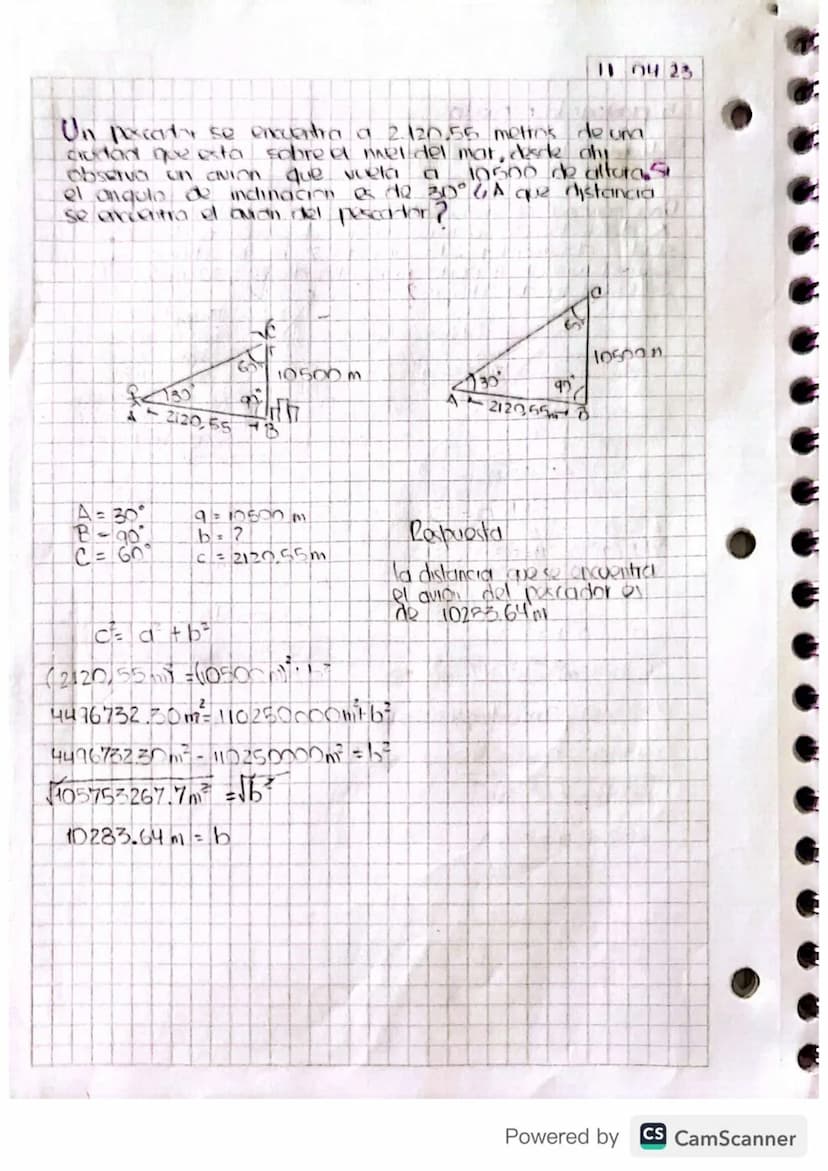 11 04 23
Un pescador se encuentra a 2.120,55 metros de una
ciudad que esta sobre el nivel del mar, desde ahi
observa un avion que vuela a 10500 de altura. Si
el angulo de inclinacion es de 30° ¿A que distancia
se encuentra el avion del pescador?
C
60°
30°
90°
10500 m
A
2120,55
B
C
60°
30°
90°
10500 m
A
2120,55m
B
A = 30° a = 10500 m
B = 90° b = ?
C = 60° c = 2120,55m
Respuesta
la distancia que se encuentra
el avion del pescador es
de 10283.64m
c² = a + b²
(2120,55m)² = (10500m)² +
4496732.30m² = 110250000m² + b²
449673230m² - 110250000m² = b²
√105753267.7m² = √b²
10283.64 m = b
Powered by CS CamScanner